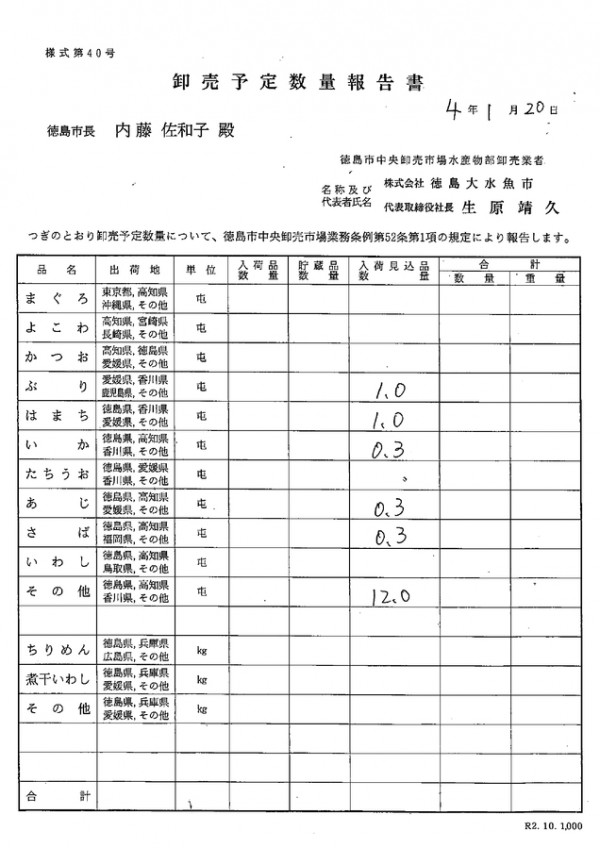 様式第40号
卸売予定数量報告書
4年1月20日
徳島市長 内藤 佐和子 殿
徳島市中央卸売市場水産物部卸売業者
名称及び 株式会社 徳島大水魚市
代表者氏名 代表取締役社長 生原靖久
つぎのとおり卸売予定数量について、徳島市中央卸売市場業務条例第52条第1項の規定により報告します。
品名 出荷地 単位 入荷品数量 貯蔵品数量 入荷見込品数量 合計
数量 重量
まぐろ 東京都, 高知県 沖縄県, その他 屯
よこわ 高知県, 宮崎県 長崎県, その他 屯
かつお 高知県, 徳島県 愛媛県, その他 屯
ぶり 愛媛県, 香川県 鹿児島県, その他 屯 1.0
はまち 徳島県, 香川県 愛媛県, その他 屯 1.0
いか 徳島県, 高知県 香川県, その他 屯 0.3
たちうお 徳島県, 愛媛県 香川県, その他 屯
あじ 徳島県, 高知県 愛媛県, その他 屯 0.3
さば 徳島県, 高知県 福岡県, その他 屯 0.3
いわし 徳島県, 高知県 鳥取県, その他 屯
その他 徳島県, 高知県 香川県, その他 屯 12.0
ちりめん 徳島県, 兵庫県 広島県, その他 kg
煮干いわし 徳島県, 兵庫県 愛媛県, その他 kg
その他 徳島県, 兵庫県 愛媛県, その他 kg
合計
R2. 10. 1,000